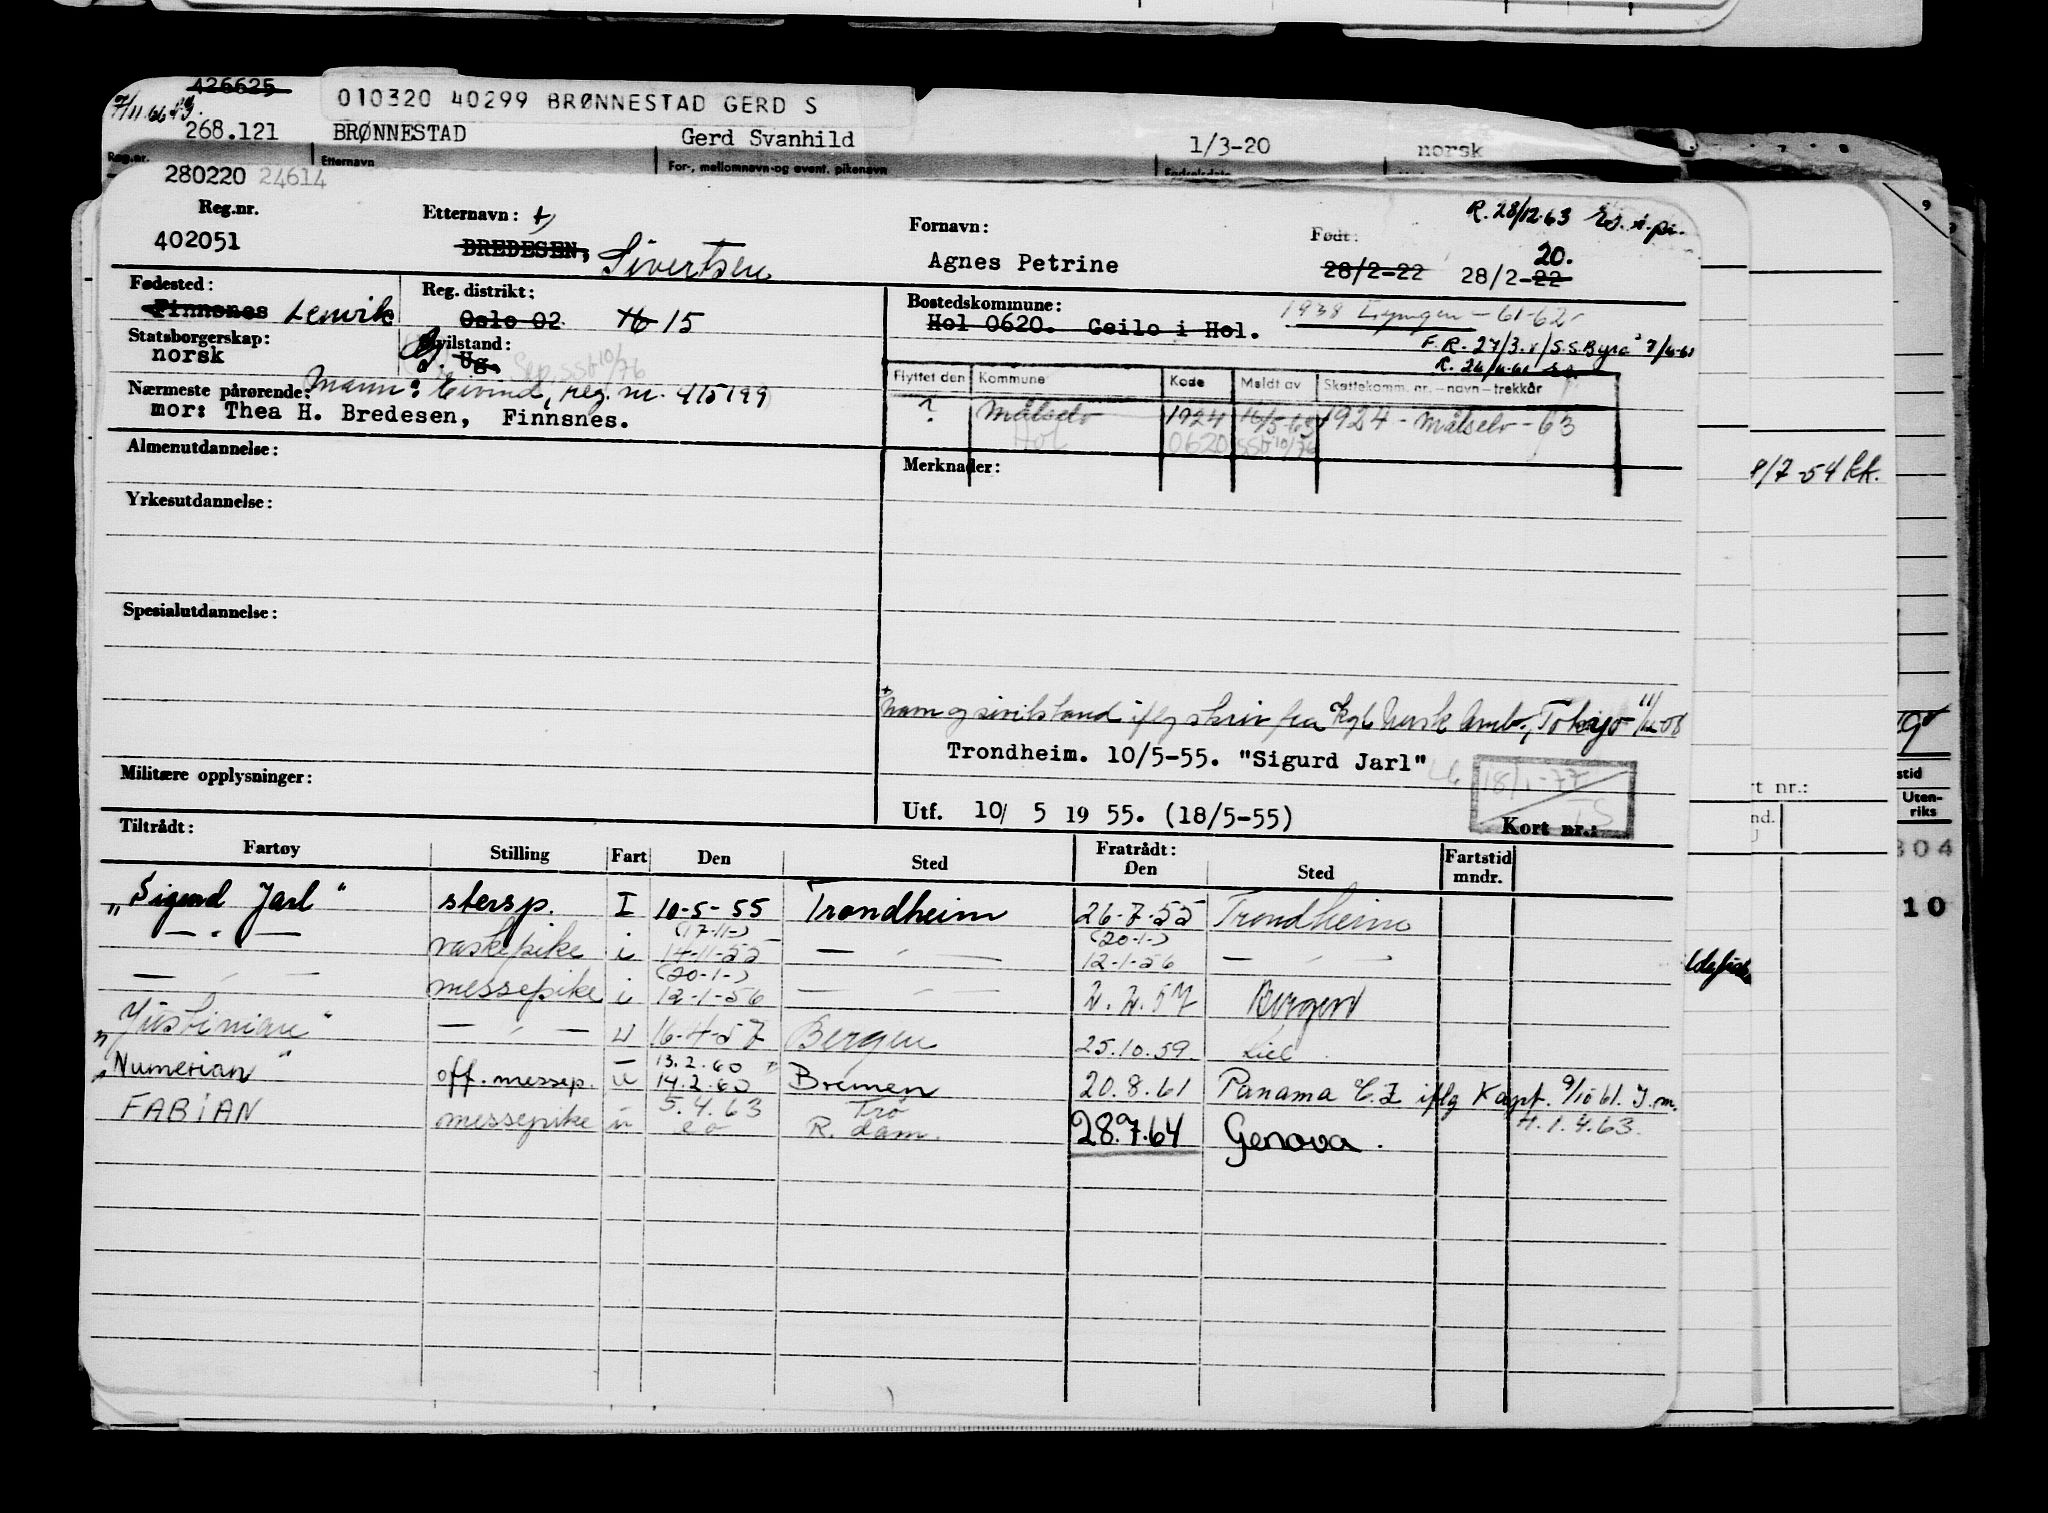 426625
010320 40299 BRØNNESTAD GERD S
268.121 BRØNNESTAD Gerd Svanhild 1/3-20 norsk
Reg.nr. Etternavn For-, mellomnavn-og event. pikenavn Fødselsdato
280220 24614
Reg.nr. Etternavn: Fornavn: Født: R. 28/12-63
402051 BREDESEN, Sivertsen Agnes Petrine 28/2-22 28/2-22 20.
Fødested: Reg. distrikt: Bostedskommune:
Finnsnes Lenvik Oslo 02. 15 Hol 0620. Geilo i Hol. 1938 Lyngen - 61-62
Statsborgerskap: Sivilstand: F.R. 27/3.
norsk Ug. R. 26/6-61
Nærmeste pårørende: Mann: Eivind, reg. nr. 415199
mor: Thea H. Bredesen, Finnsnes.
Flyttet den Kommune Kode Meldt av Skattekomm. nr. – navn – trekkår
? Målselv 1924 16/5-63 1924 - Målselv - 63
Hol 0620 SSB 10/76
Almenutdannelse: Merknader:
9/7-54
Yrkesutdannelse:
Spesialutdannelse:
Navn og sivilstand iflg skriv fra Kgl. Norsk Amb., Tokyo
Trondheim. 10/5-55. "Sigurd Jarl"
Militære opplysninger: 18/1-77
Utf. 10/ 5 19 55. (18/5-55) Kort nr.:
Tiltrådt: Fratrådt: Fartstid mndr.
Fartøy Stilling Fart Den Sted Den Sted
"Sigurd Jarl" stersp. I 10-5-55 Trondheim 26-7-55 Trondheim
— " — vaskepike i (17-11-) 14-11-55 — " — (20-1-) 12-1-56 — " —
— " — messepike i (20-1-) 12-1-56 — " — 2.2.57 Bergen
"Justinian" — " — u 16-4-57 Bergen 25.10.59 Kiel
"Numerian" off. messep. u 13.2.60 14.2.60 Bremen 20.8.61 Panama C.Z iflg Kapt. 9/10 61. J.m.
FABIAN messepike u 5.4.63 R.dam. 28.7.64 Genova. H.1.4.63.
Uten-
riks
304
10